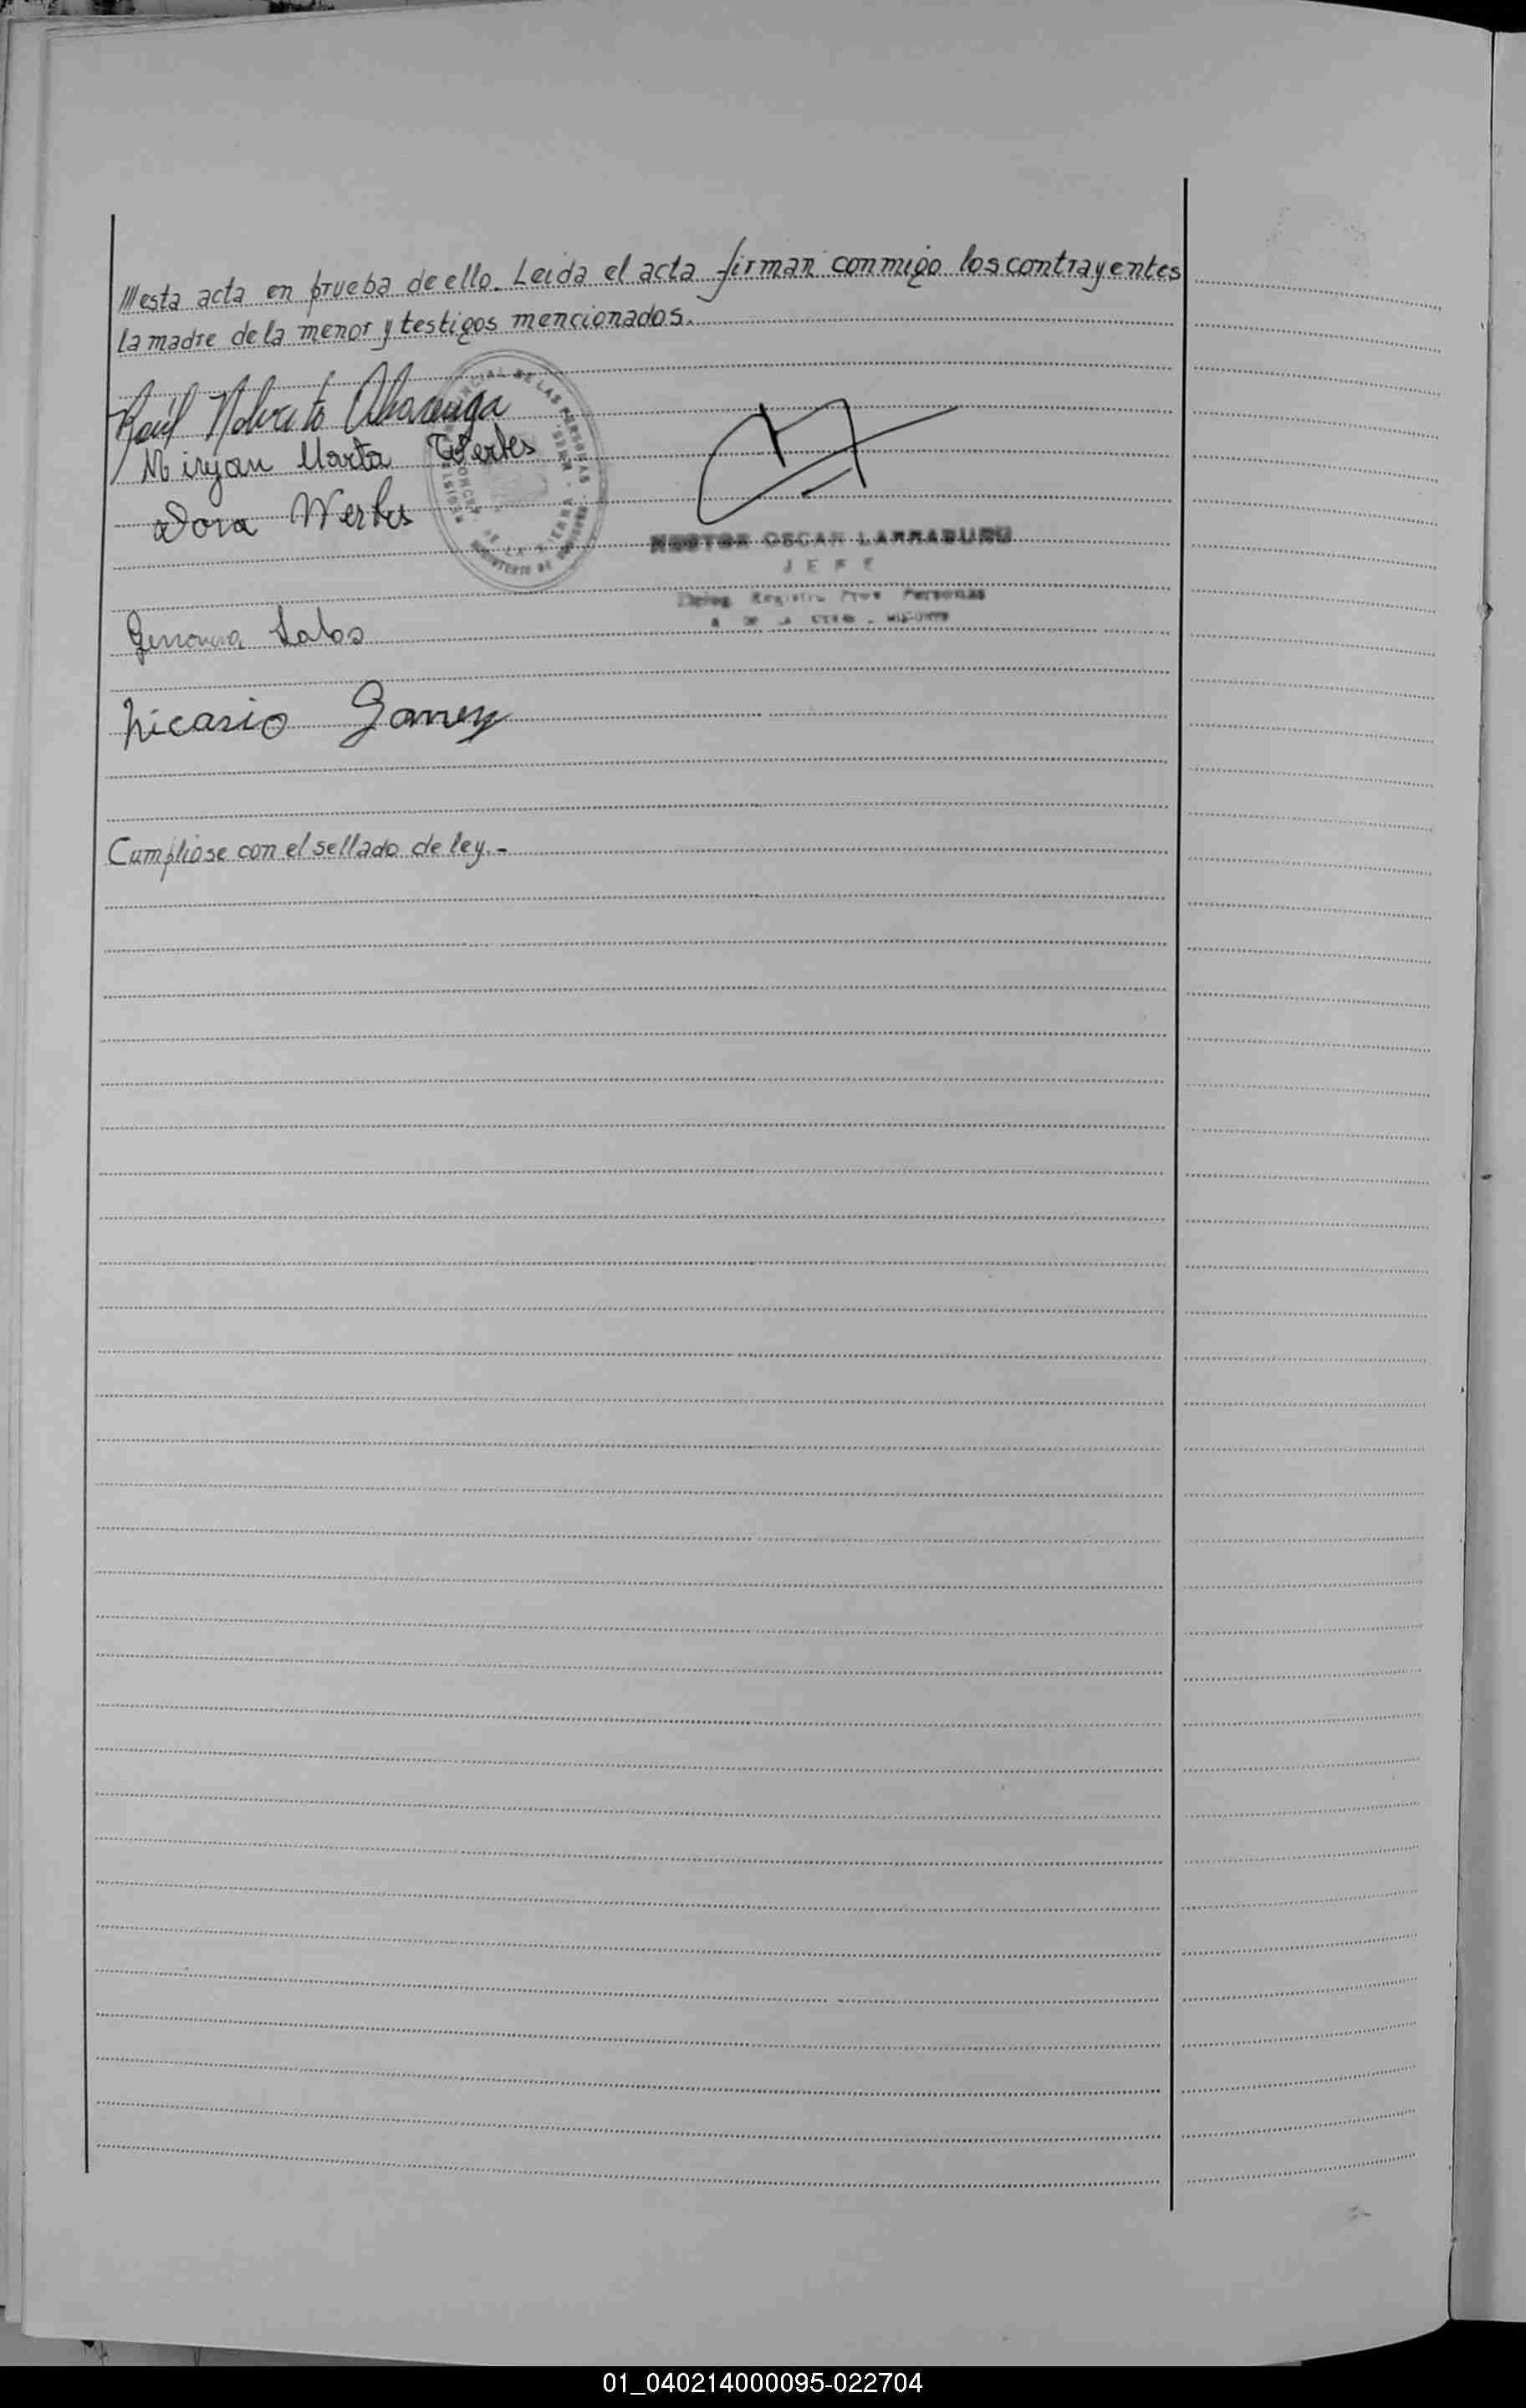 ///esta acta en prueba de ello. Leida el acta firman conmigo los contrayentes
la madre de la menor y testigos mencionados.
Raúl Norberto
Miryan Marta Wertes
Dora Wertes
OSCAR LARRABURU
JEFE
Deleg. Registro Prov Personas
Genoveva Salas
Nicasio Gomez
Cumpliose con el sellado de ley.-
01_040214000095-022704